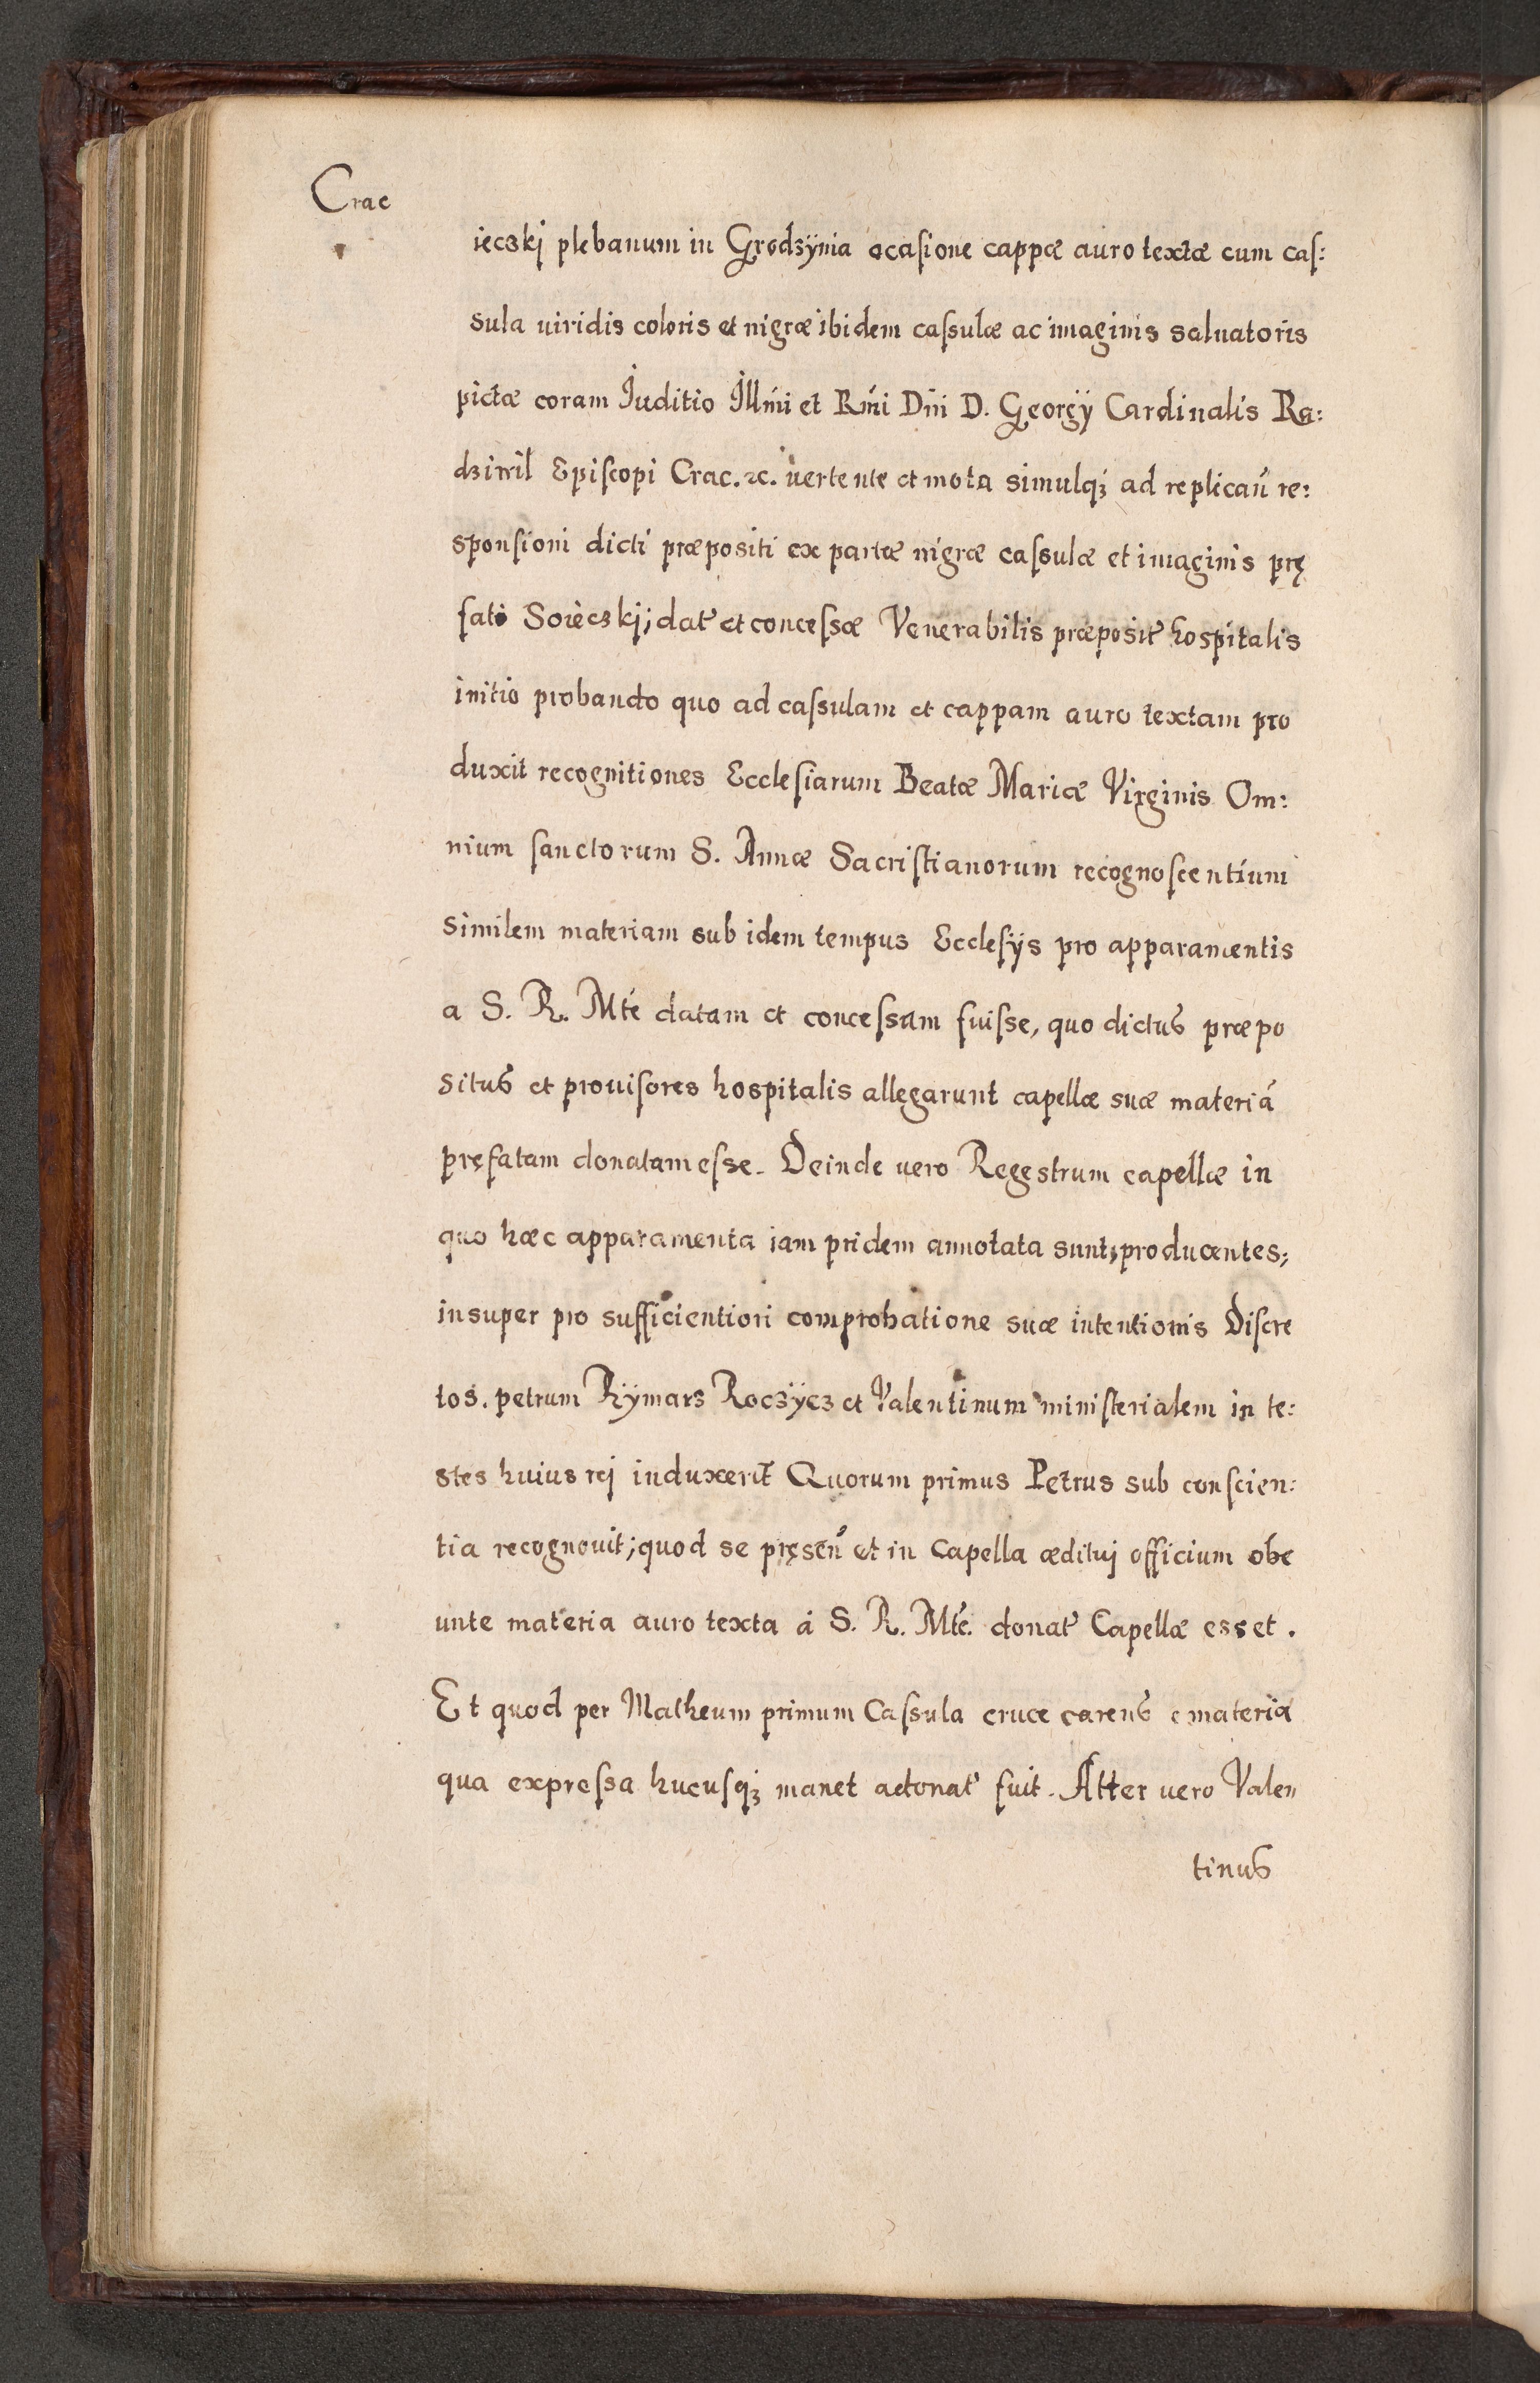 Crac
iecskj plebanum in Grodzÿnia ocasione cappæ auro textæ cum cas:
sula uiridis coloris et nigræ ibidem cassulæ ac imaginis saluatoris
pictæ coram Iuditio Illmi et Rmi Dni D. Georgÿ Cardinalis Ra:
dziwil Episcopi Crac. &c. uertente et mota simulqȝ ad replicań re:
sponsioni dicti præpositi ex partæ nigræ cassulæ et imaginis prę
fati Soieczkj; dat et concessæ Venerabilis præposit hospitalis
initio probando quo ad cassulam et cappam auro textam pro
duxit recognitiones Ecclesiarum Beatæ Mariæ Virginis Om:
nium sanctorum S. Annæ Sacristianorum recognoscentium
similem materiam sub idem tempus Ecclesÿs pro apparamentis
a S. R. Mte datam et concessam fuisse, quo dictus præpo
situs et prouisores hospitalis allegarunt capellæ suæ materiá
pręfatam donatam esse. Deinde uero Regestrum capellæ in
quo hæc apparamenta iam pridem annotata sunt, producentes;
insuper pro sufficientiori comprobatione suæ intentionis Discre
tos. petrum Rÿmars Roczÿcz et Valentinum ministerialem in te:
stes huius rej induxerūt Quorum primus Petrus sub conscien:
tia recognouit; quod se pręseń et in Capella æditui officium obe
unte materia auro texta á S. R. Mte. donat Capellæ esset.
Et quod per Matheum primum Cassula cruce carens e materia
qua expressa hucusqȝ manet adonat fuit. Alter uero Valen
tinus